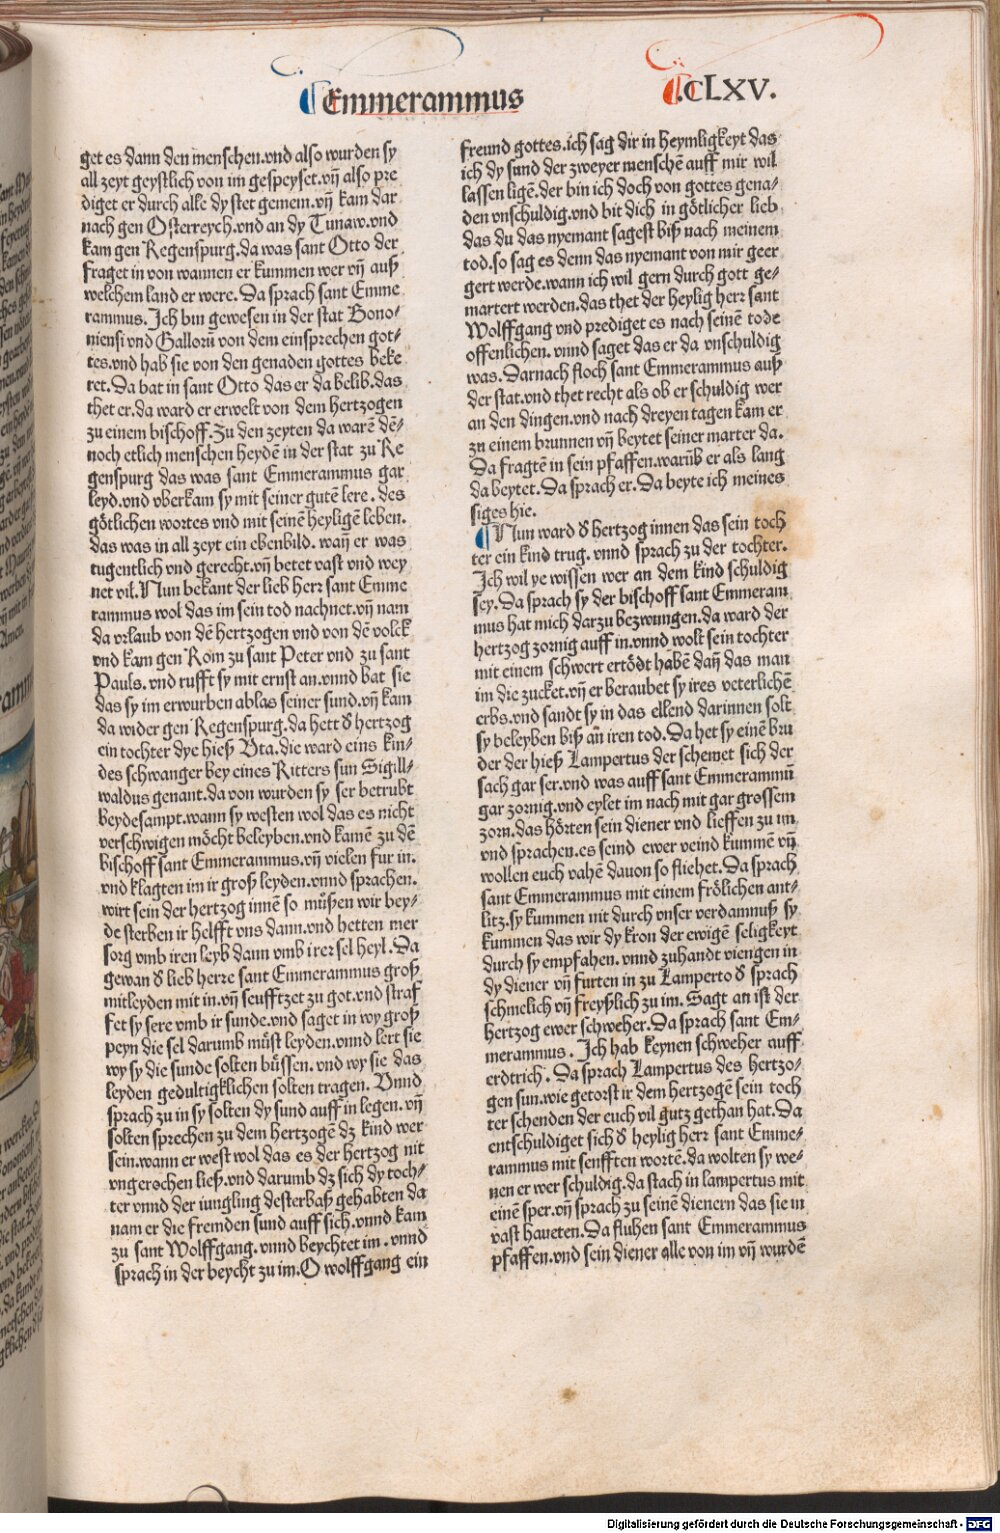 Emmerammus
.CLXV.
get es dann den menschen.vnd also wurden sy
all zeyt geystlich von im gespeyset.vñ also pre
diget er durch alle dy stet gemein.vñ kam dar
nach gen Osterreych.vnd an dy Tunaw.vnd
kam gen Regenspurg.da was sant Otto der
fraget in von wannen er kummen wer vñ auß
welchem land er were.Da sprach sant Emme
rammus.Ich bin gewesen in der stat Bono⸗
niensi vnd Gallorū von dem einsprechen got⸗
tes.vnd hab sie von den genaden gottes beke
ret.Da bat in sant Otto das er da belib.das
thet er.da ward er erwelt von dem hertzogen
zu einem bischoff.Zu den zeyten da warē dē⸗
noch etlich menschen heydē in der stat zu Re
genspurg das was sant Emmerammus gar
leyd.vnd vberkam sy mit seiner gutē lere.des
götlichen wortes vnd mit seinē heyligē leben.
das was in all zeyt ein ebenbild.wañ er was
tugentlich vnd gerecht.vñ betet vast vnd wey
net vil.Nun bekant der lieb herr sant Emme
rammus wol das im sein tod nachnet.vñ nam
da vrlaub von dē hertzogen vnd von dē volck
vnd kam gen Rom zu sant Peter vnd zu sant
Pauls.vnd rufft sy mit ernst an.vnnd bat sie
das sy im erwurben ablas seiner sund.vñ kam
da wider gen Regenspurg.da hett d̕ hertzog
ein tochter dye hieß Vta.die ward eins kin⸗
des schwanger bey eines Ritters sun Sigill⸗
waldus genant.da von wurden sy ser betrubt
beydesampt.wann sy westen wol das es nicht
verschwigen möcht beleyben.vnd kamē zu dē
bischoff sant Emmerammus.vñ vielen fur in.
vnd klagten im ir groß leyden.vnnd sprachen.
wirt sein der hertzog innē so müßen wir bey⸗
de sterben ir helfft vns dann.vnd hetten mer
sorg vmb iren leyb dann vmb irer sel heyl.Da
gewan d̕ lieb herre sant Emmerammus groß
mitleyden mit in.vñ seufftzet zu got.vnd straf
fet sy sere vmb ir sunde.vnd saget in wy groß
peyn die sel darumb müst leyden.vnnd lert sie
wy sy die sunde solten büssen.vnd wy sie das
leyden gedultigklichen solten tragen.Vnnd
sprach zu in sy solten dy sund auff in legen.vñ
solten sprechen zu dem hertzogē dz kind wer
sein.wann er west wol das es der hertzog nit
vngerochen ließ.vnd darumb dz sich dy toch⸗
ter vnnd der iungling desterbaß gehabten da
nam er die fremden sund auff sich.vnnd kam
zu sant Wolffgang.vnnd beychtet im.vnnd
sprach in der beycht zu im.O wolffgang ein
freund gottes.ich sag dir in heymligkeyt das
ich dy sund der zweyer menschē auff mir wil
lassen ligē.der bin ich doch von gottes gena⸗
den vnschuldig.vnd bit dich in götlicher lieb
das du das nyemant sagest biß nach meinem
tod.so sag es denn das nyemant von mir geer
gert werde.wann ich wil gern durch gott ge⸗
martert werden.das thet der heylig herr sant
Wolffgang vnd prediget es nach seinē tode
offenlichen.vnnd saget das er da vnschuldig
was.Darnach floch sant Emmerammus auß
der stat.vnd thet recht als ob er schuldig wer
an den dingen.vnd nach dreyen tagen kam er
zu einem brunnen vñ beytet seiner marter da.
Da fragtē in sein pfaffen.warūb er als lang
da beytet.Da sprach er.Da beyte ich meines
siges hie.
Nun ward d̕ hertzog innen das sein toch
ter ein kind trug.vnnd sprach zu der tochter.
Ich wil ye wissen wer an dem kind schuldig
sey.Da sprach sy der bischoff sant Emmeram
mus hat mich darzu bezwungen.da ward der
hertzog zornig auff in.vnnd wolt sein tochter
mit einem schwert ertödt habē dañ das man
im die zucket.vñ er beraubet sy ires veterlichē
erbs.vnd sandt sy in das ellend darinnen solt
sy beleyben biß añ iren tod.Da het sy einē bru
der der hieß Lampertus der schemet sich der
sach gar ser.vnd was auff sant Emmerammū
gar zornig.vnd eylet im nach mit gar grossem
zorn.das hörten sein diener vnd lieffen zu im
vnd sprachen.es seind ewer veind kummē vñ
wollen euch vahē dauon so fliehet.Da sprach
sant Emmerammus mit einem frölichen ant⸗
litz.sy kummen nit durch vnser verdamnuß sy
kummen das wir dy kron der ewigē seligkeyt
durch sy empfahen.vnnd zuhandt viengen in
dy diener vñ furten in zu Lamperto d̕ sprach
schmelich vñ freyßlich zu im.Sagt an ist der
hertzog ewer schweher.Da sprach sant Em⸗
merammus.Ich hab keynen schweher auff
erdtrich.Da sprach Lampertus des hertzo⸗
gen sun.wie getorst ir dem hertzogē sein toch
ter schenden der euch vil gutz gethan hat.Da
entschuldiget sich d̕ heylig herr sant Emme⸗
rammus mit senfften wortē.da wolten sy we⸗
nen er wer schuldig.da stach in lampertus mit
einē sper.vñ sprach zu seinē dienern das sie in
vast haueten.Da fluhen sant Emmerammus
pfaffen.vnd sein diener alle von im vñ wurdē
Digitalisierung gefördert durch die Deutsche Forschungsgemeinschaft - DFG